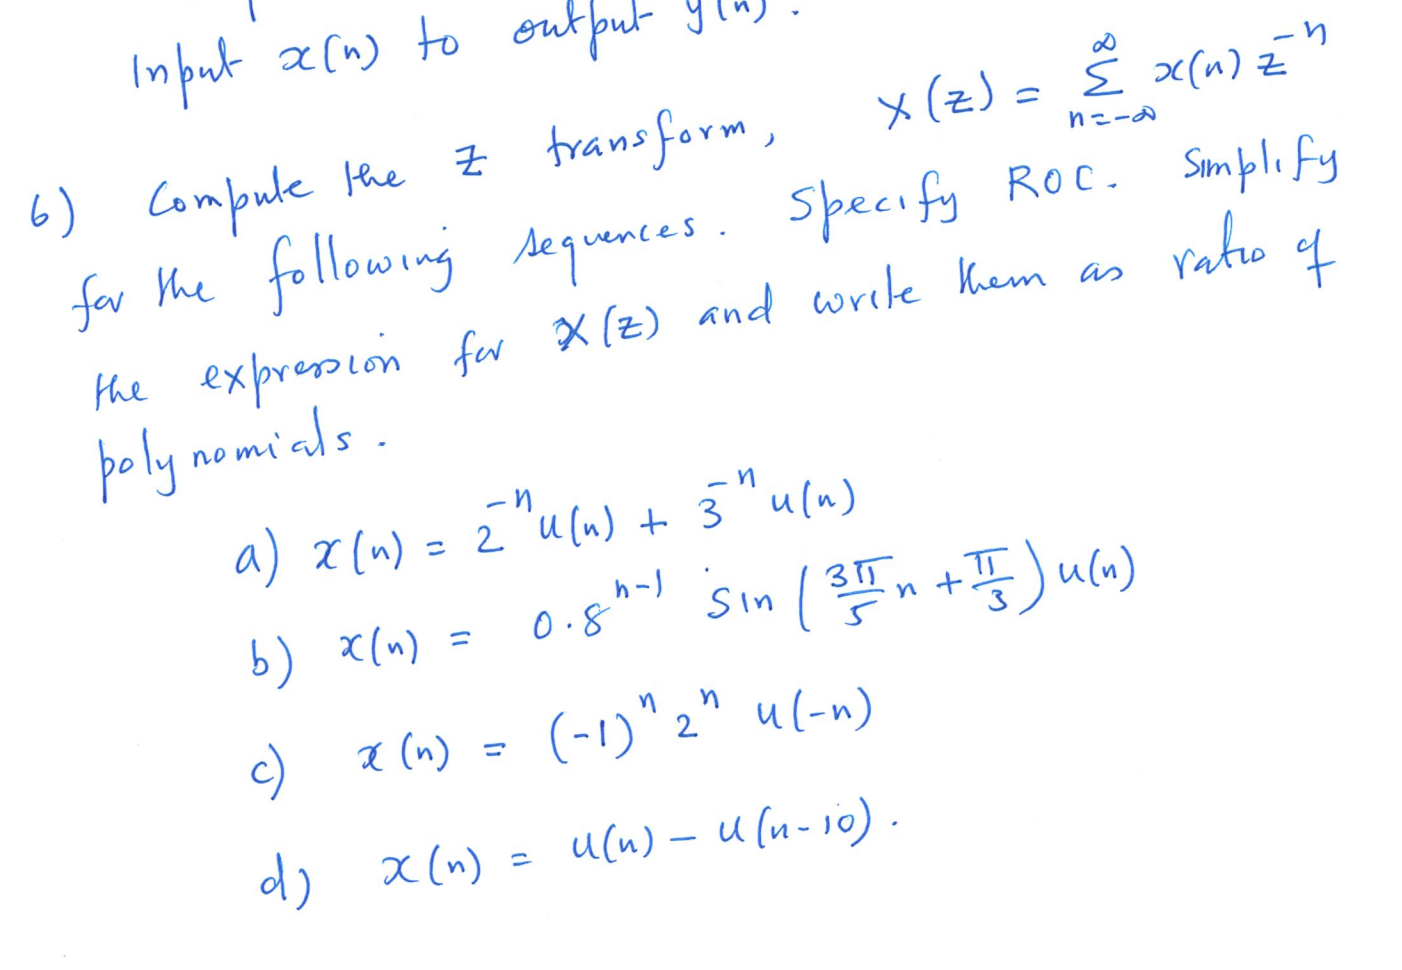 Input x(n) to output y(n).
6) Compute the z transform, X(z) = ∑_{n=-∞}^{∞} x(n) z^{-n}
for the following sequences. Specify ROC. Simplify
the expression for X(z) and write them as ratio of
polynomials.
a) x(n) = 2^{-n} u(n) + 3^{-n} u(n)
b) x(n) = 0.8^{n-1} sin(3π/5 n + π/3) u(n)
c) x(n) = (-1)^n 2^n u(-n)
d) x(n) = u(n) - u(n-10).